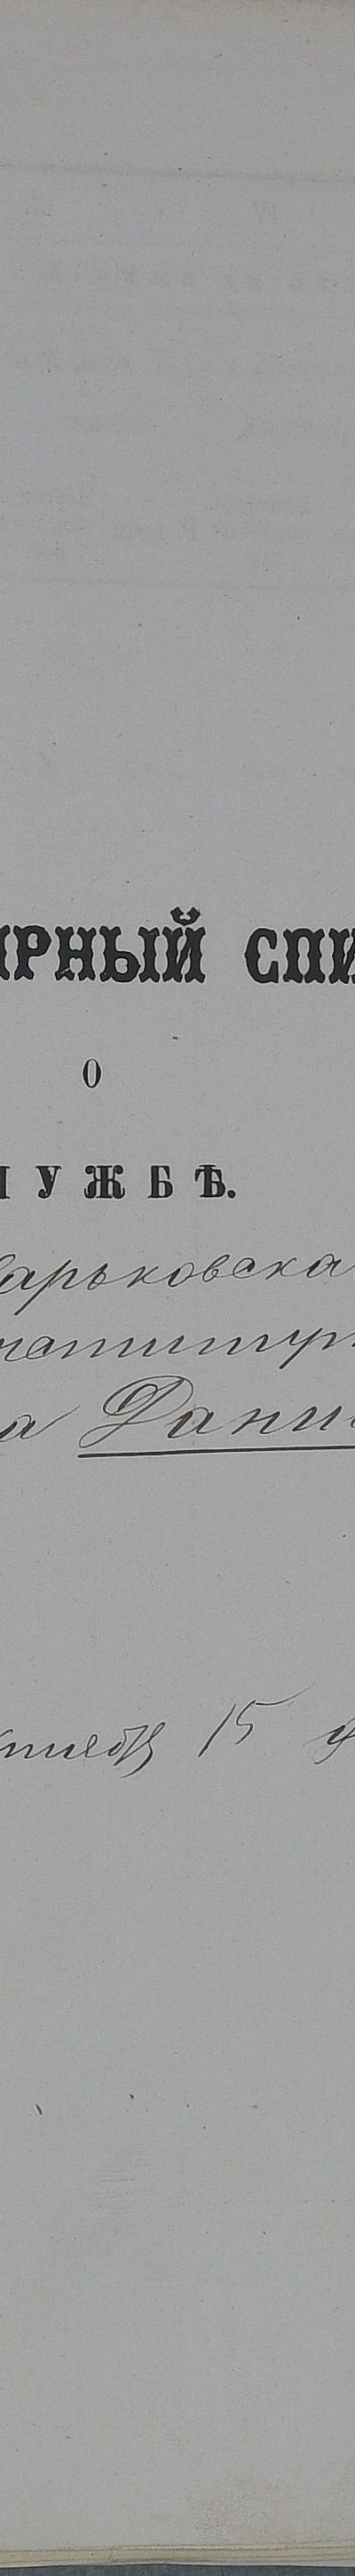 ЯРНЫЙ СПИ
О
ЛУЖБѢ.
Харьковска
нститут
а Дани
ктября 15 д